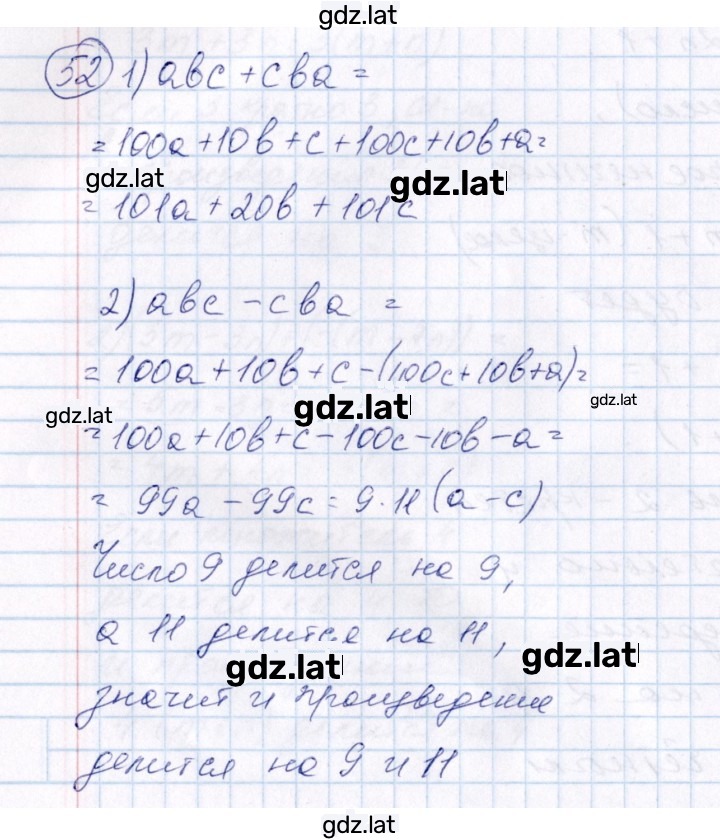 gdz.lat
52 1) abc + cba =
= 100a + 10b + c + 100c + 10b + a =
gdz.lat
gdz.lat
= 101a + 20b + 101c
2) abc - cba =
= 100a + 10b + c - (100c + 10b + a) =
gdz.lat
gdz.lat
gdz.lat
= 100a + 10b + c - 100c - 10b - a =
= 99a - 99c = 9·11(a - c)
Число 9 делится на 9,
а 11 делится на 11,
gdz.lat
gdz.lat
значит и произведение
делится на 9 и 11
gdz.lat